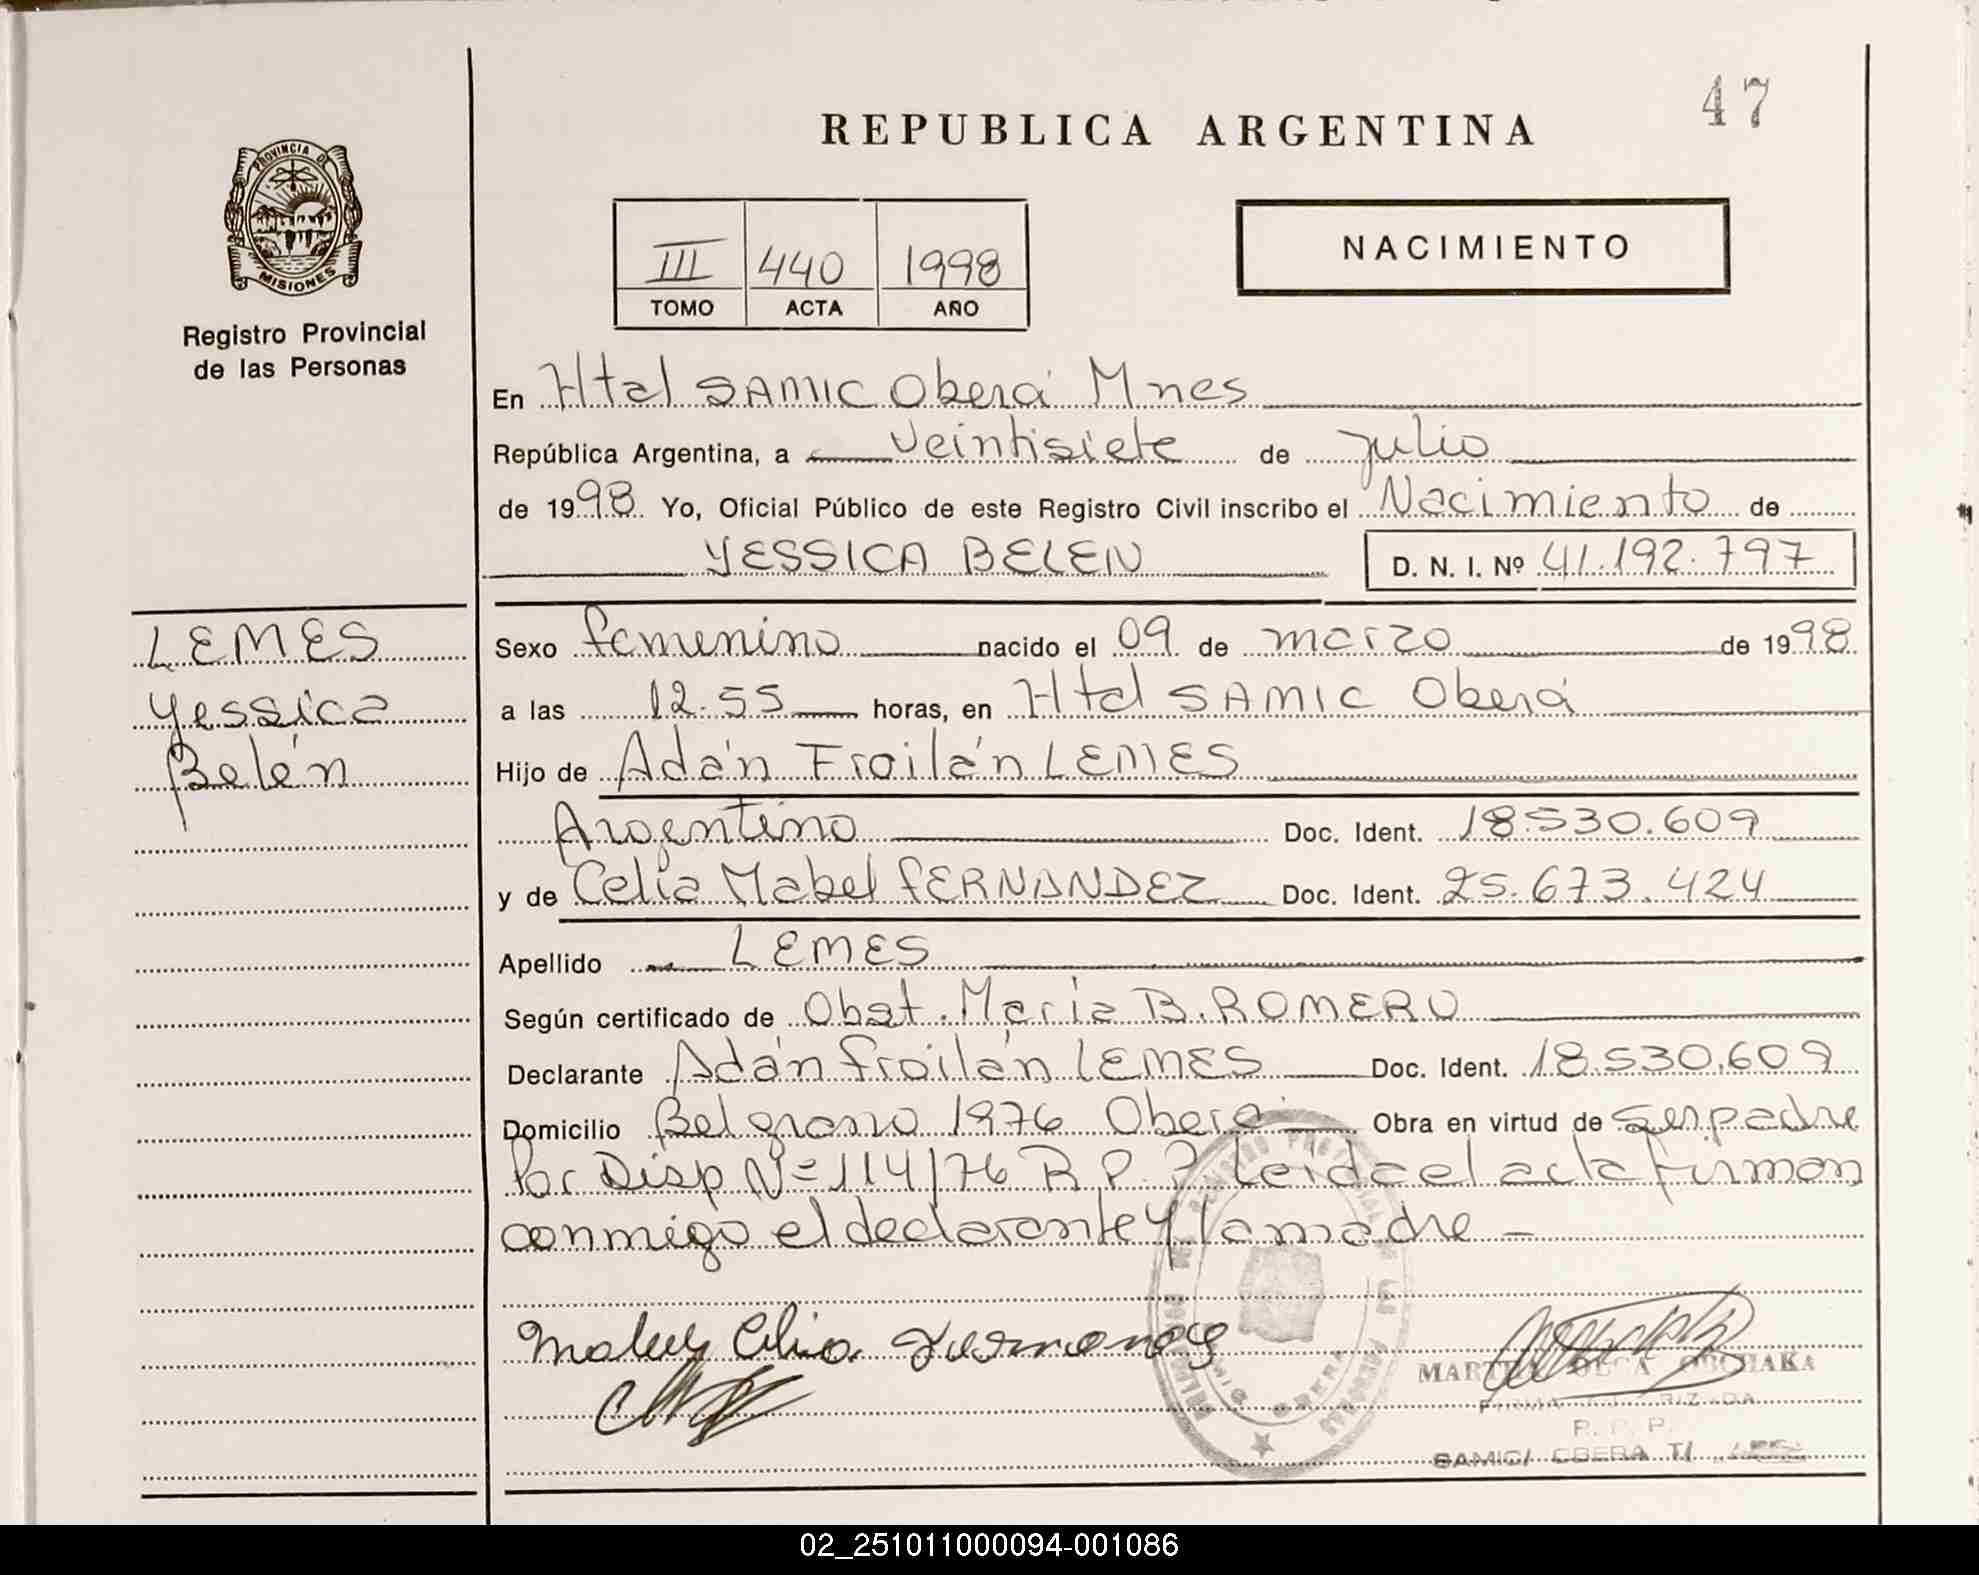 47
REPUBLICA ARGENTINA
PROVINCIA DE
MISIONES
Registro Provincial
de las Personas
III 440 1998
TOMO ACTA AÑO
NACIMIENTO
En Htal SAMIC Oberá Mnes
República Argentina, a veintisiete de julio
de 1998 Yo, Oficial Público de este Registro Civil inscribo el Nacimiento de
YESSICA BELEN D. N. I. Nº 41.192.797
LEMES
Yessica
Belén
Sexo femenino nacido el 09 de marzo de 1998
a las 12.55 horas, en Htal SAMIC Oberá
Hijo de Adán Froilán LEMES
Argentino Doc. Ident. 18.530.609
y de Celia Mabel FERNANDEZ Doc. Ident. 25.673.424
Apellido LEMES
Según certificado de Obst. María B. ROMERO
Declarante Adán Froilán LEMES Doc. Ident. 18.530.609
Domicilio Belgrano 1976 Oberá Obra en virtud de ser padre
Por Disp Nº 114/76 R.P.P. Leida el acta firman
conmigo el declarante y la madre -
SAMIC/ OBERA T/
02_251011000094-001086